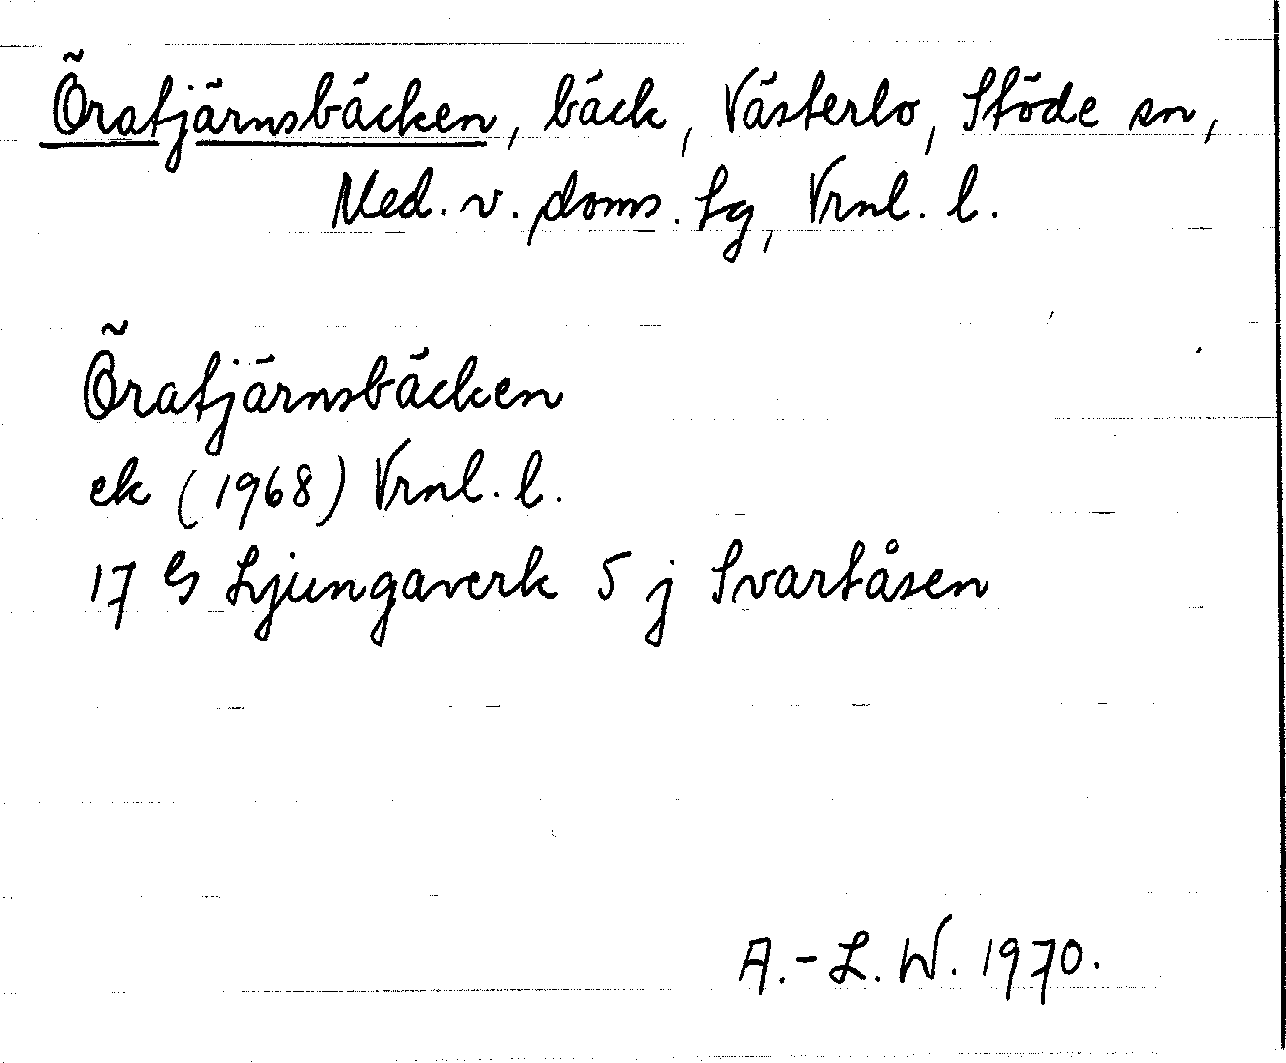 Öratjärnsbäcken, bäck, Västerlo, Stöde sn,
Med. v. doms. tg, Vrnl. l.
Öratjärnsbäcken
ek (1968) Vrnl. l.
17 G Ljungaverk 5 j Svartåsen
A.-L. W. 1970.